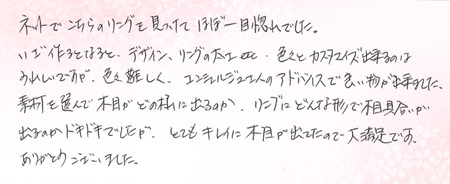 ネットでこちらのリングを見つけて ほぼ一目惚れでした。
いざ作るとなると、デザイン、リングの太さetc… 色々とカスタマイズ出来るのは
うれしいですが、色々難しく、コンシェルジュさんのアドバイスで良い物が出来ました。
素材を選んで木目がどの様に出るのか、リングにどんな形で木目具合いが
出るのかドキドキでしたが、とてもキレイに木目が出てたので大満足です。
ありがとうございました。